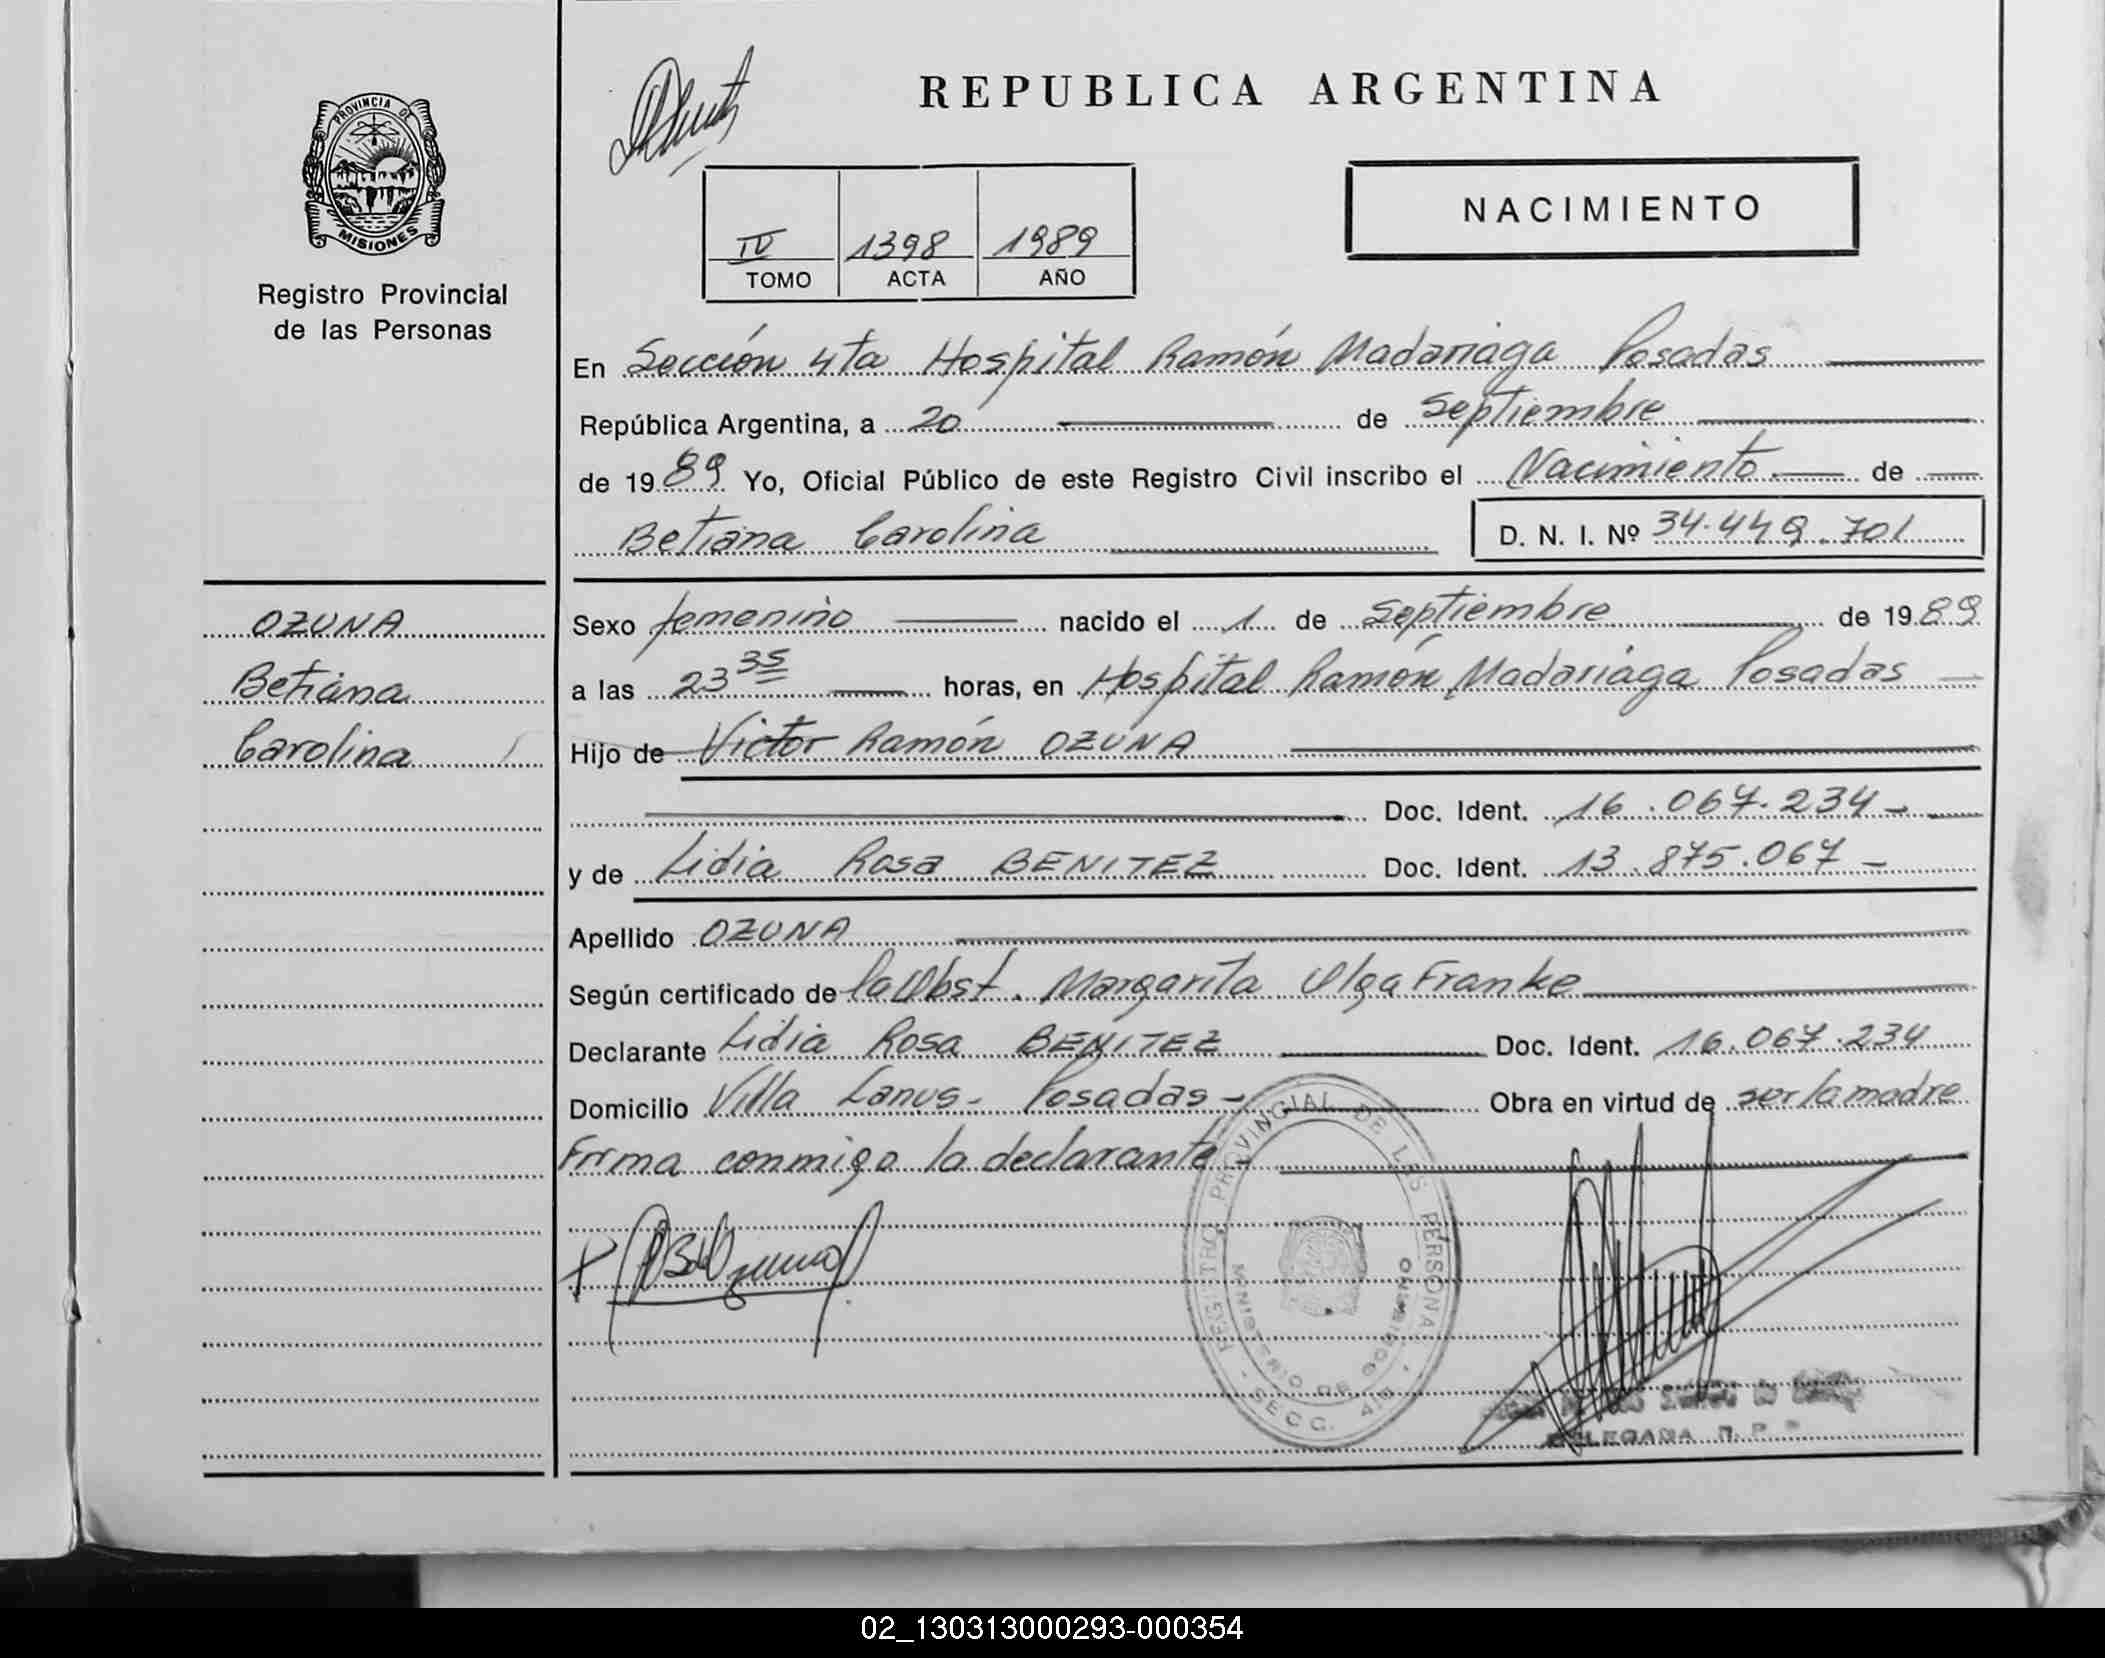 REPUBLICA ARGENTINA
PROVINCIA DE
MISIONES
Registro Provincial
de las Personas
IV 1398 1989
TOMO ACTA AÑO
NACIMIENTO
En Sección 4ta Hospital Ramón Madariaga Posadas
República Argentina, a 20 de Septiembre
de 1989 Yo, Oficial Público de este Registro Civil inscribo el Nacimiento de
Betiana Carolina D. N. I. Nº 34.449.701
OZUNA
Betiana
Carolina
Sexo femenino nacido el 1 de Septiembre de 1989
a las 23 35 horas, en Hospital Ramón Madariaga Posadas
Hijo de Victor Ramón OZUNA
Doc. Ident. 16.067.234-
y de Lidia Rosa BENITEZ Doc. Ident. 13.875.067-
Apellido OZUNA
Según certificado de la Obst. Margarita Olga Franke
Declarante Lidia Rosa BENITEZ Doc. Ident. 16.067.234
Domicilio Villa Lanus- Posadas- Obra en virtud de ser la madre
Firma conmigo la declarante-
REGISTRO PROVINCIAL DE LAS PERSONAS
MINISTERIO DE GOBIERNO
- SECC. 4ta -
DELEGADA R. P.
02_130313000293-000354